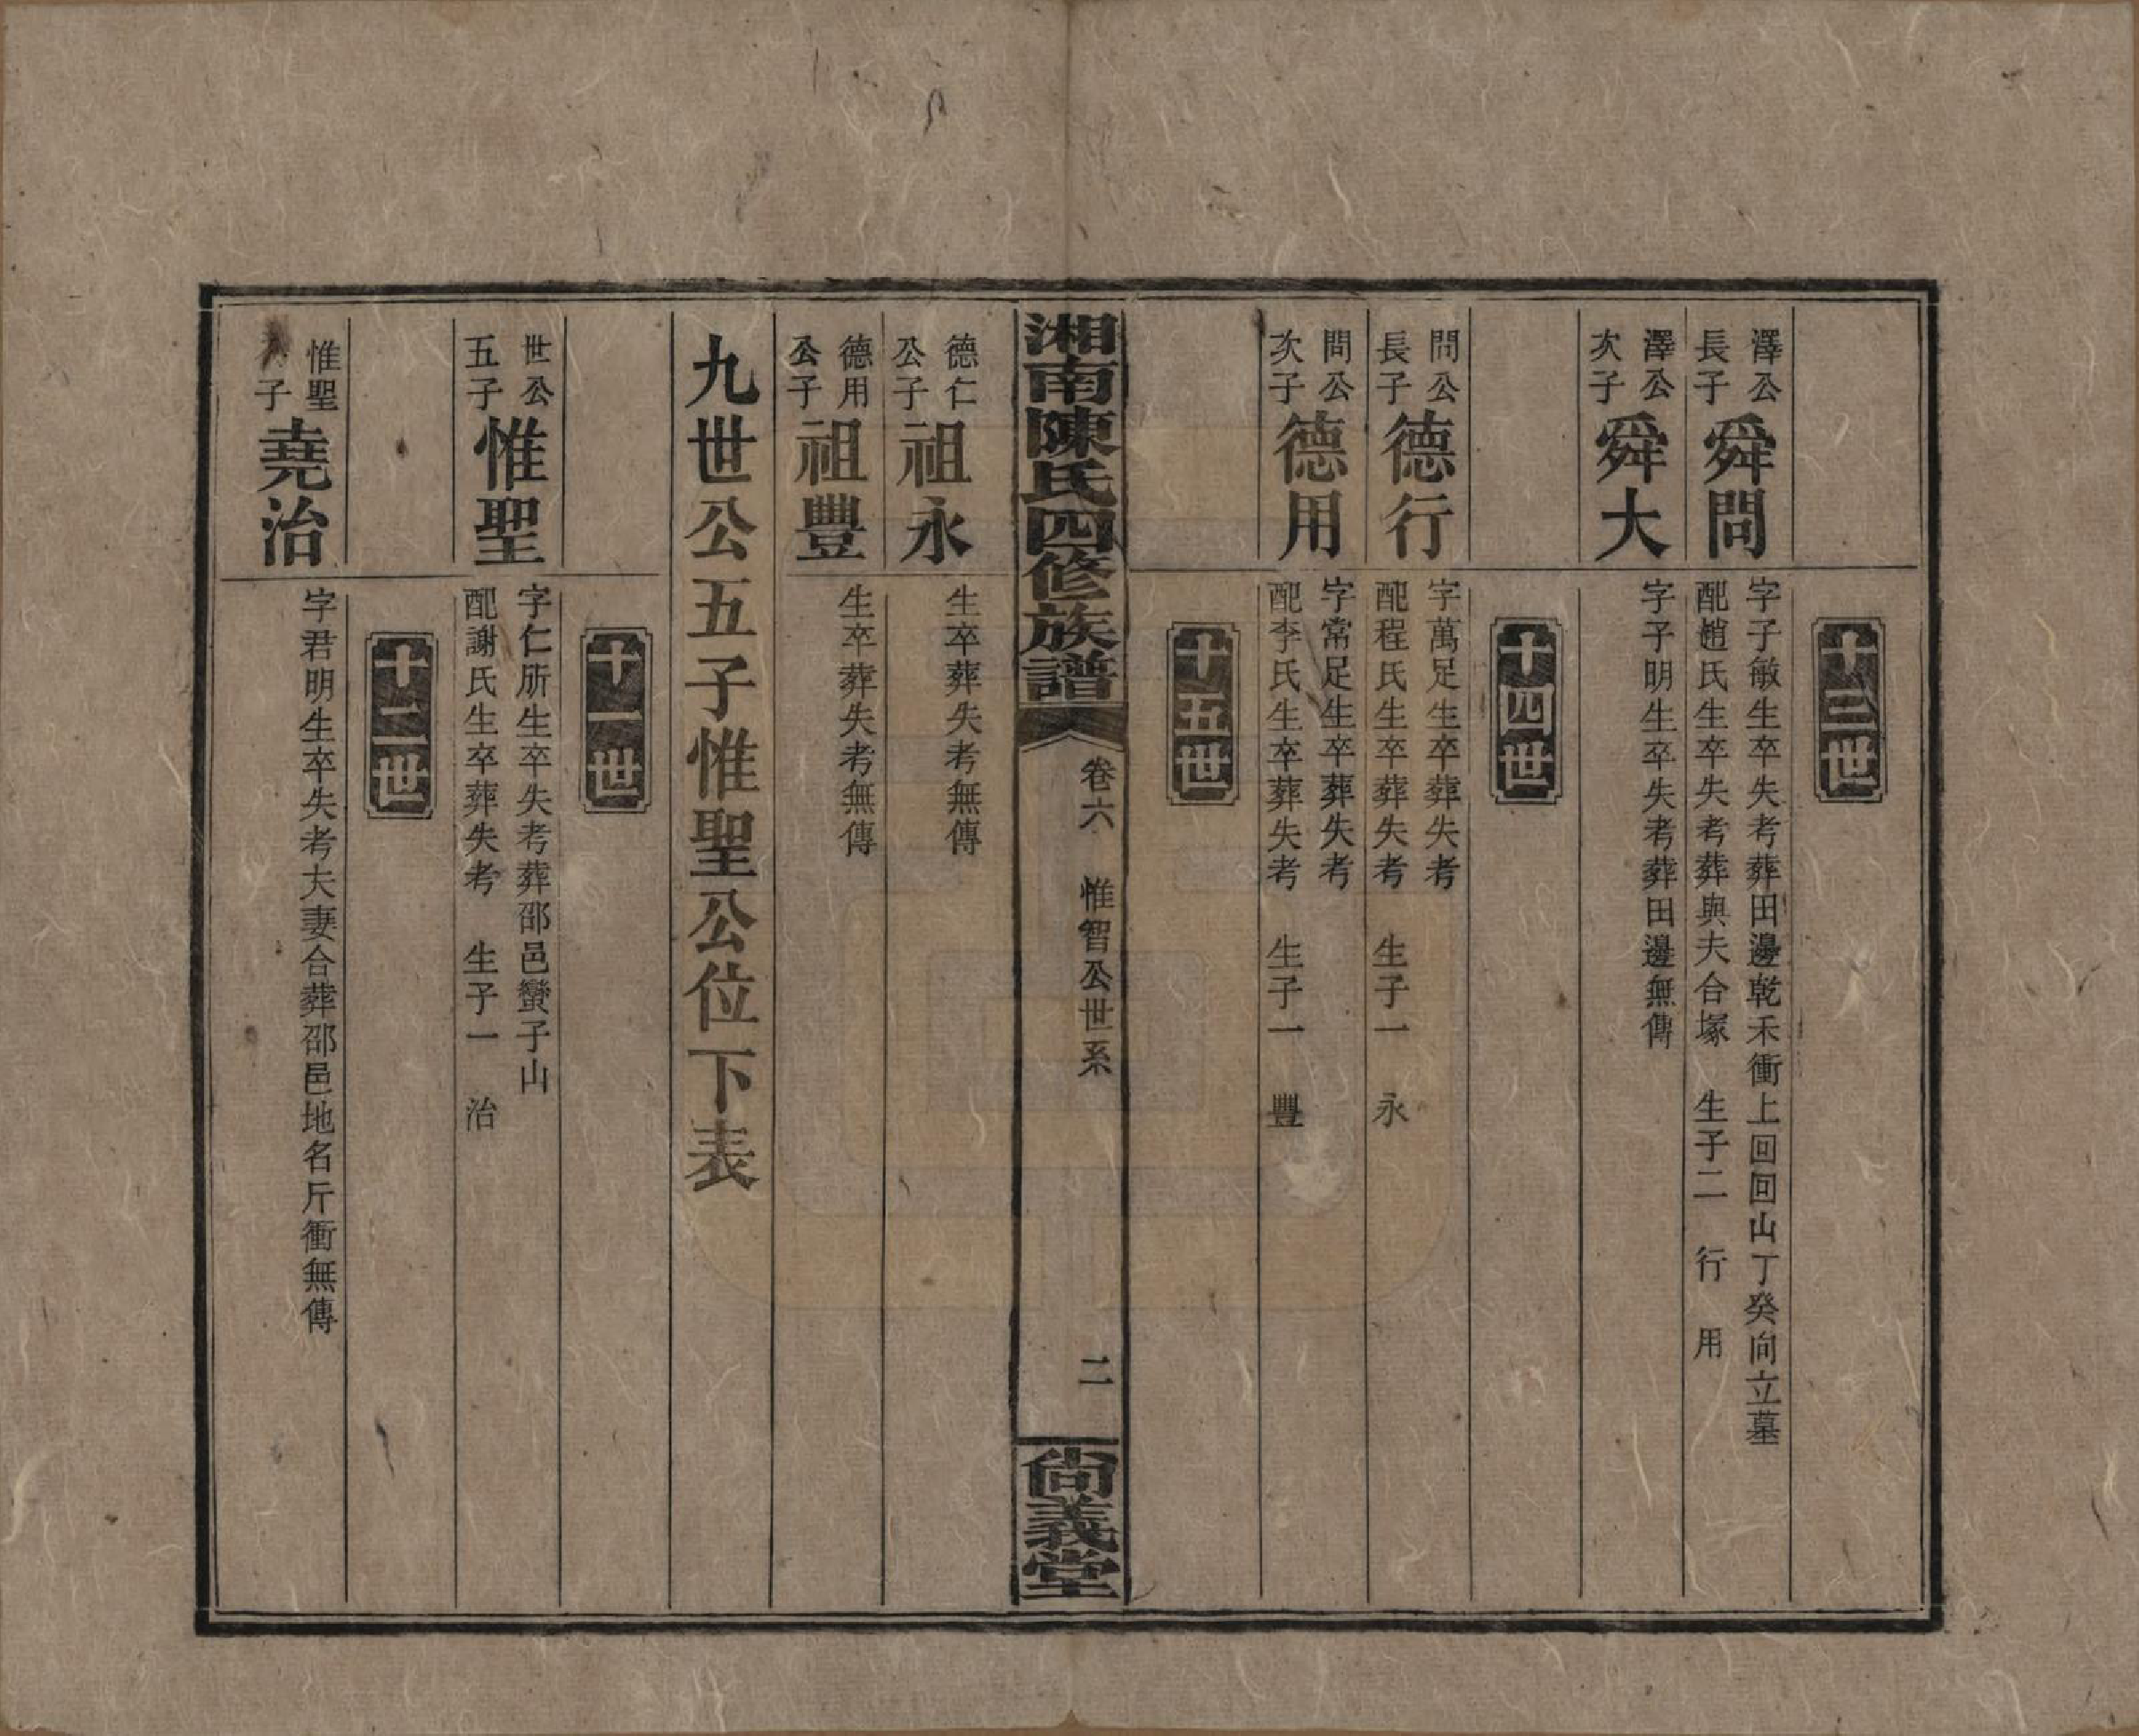 十三世
澤公
長子
舜問
字子敏生卒失考葬田邊乾禾衝上回回山丁癸向立墓
配趙氏生卒失考葬與夫合塚 生子二 行 用
澤公
次子
舜大
字子明生卒失考葬田邊無傳
十四世
問公
長子
德行
字萬足生卒葬失考
配程氏生卒葬失考 生子一 永
問公
次子
德用
字常足生卒葬失考
配李氏生卒葬失考 生子一 豐
十五世
湘南陳氏四修族譜
卷六 惟智公世系
二
尚義堂
德仁
公子
祖永
生卒葬失考無傳
德用
公子
祖豐
生卒葬失考無傳
九世公五子惟聖公位下表
十一世
世公
五子
惟聖
字仁所生卒失考葬邵邑蠻子山
配謝氏生卒葬失考 生子一 治
十二世
惟聖
子
堯治
字君明生卒失考大妻合葬邵邑地名斤衝無傳